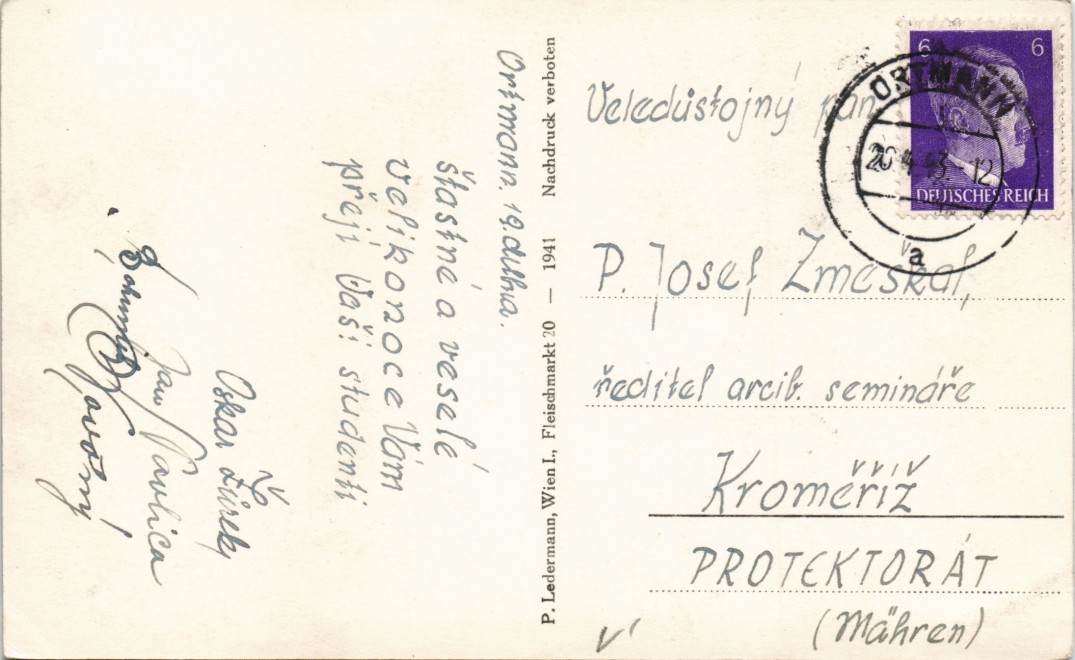 Ortmann. 19. dubna.
šťastné a veselé
velikonoce Vám
přejí Vaši studenti
Oskar Žúrek
Jan Pavlica
Bohumil Novotný
P. Ledermann, Wien I., Fleischmarkt 20 — 1941 Nachdruck verboten
Veledůstojný pán
P. Josef Zmeškal,
ředitel arcib. semináře
Kroměříž
PROTEKTORÁT
(Mähren)
6 6
DEUTSCHES REICH
ORTMANN
20.4.43.-12
a